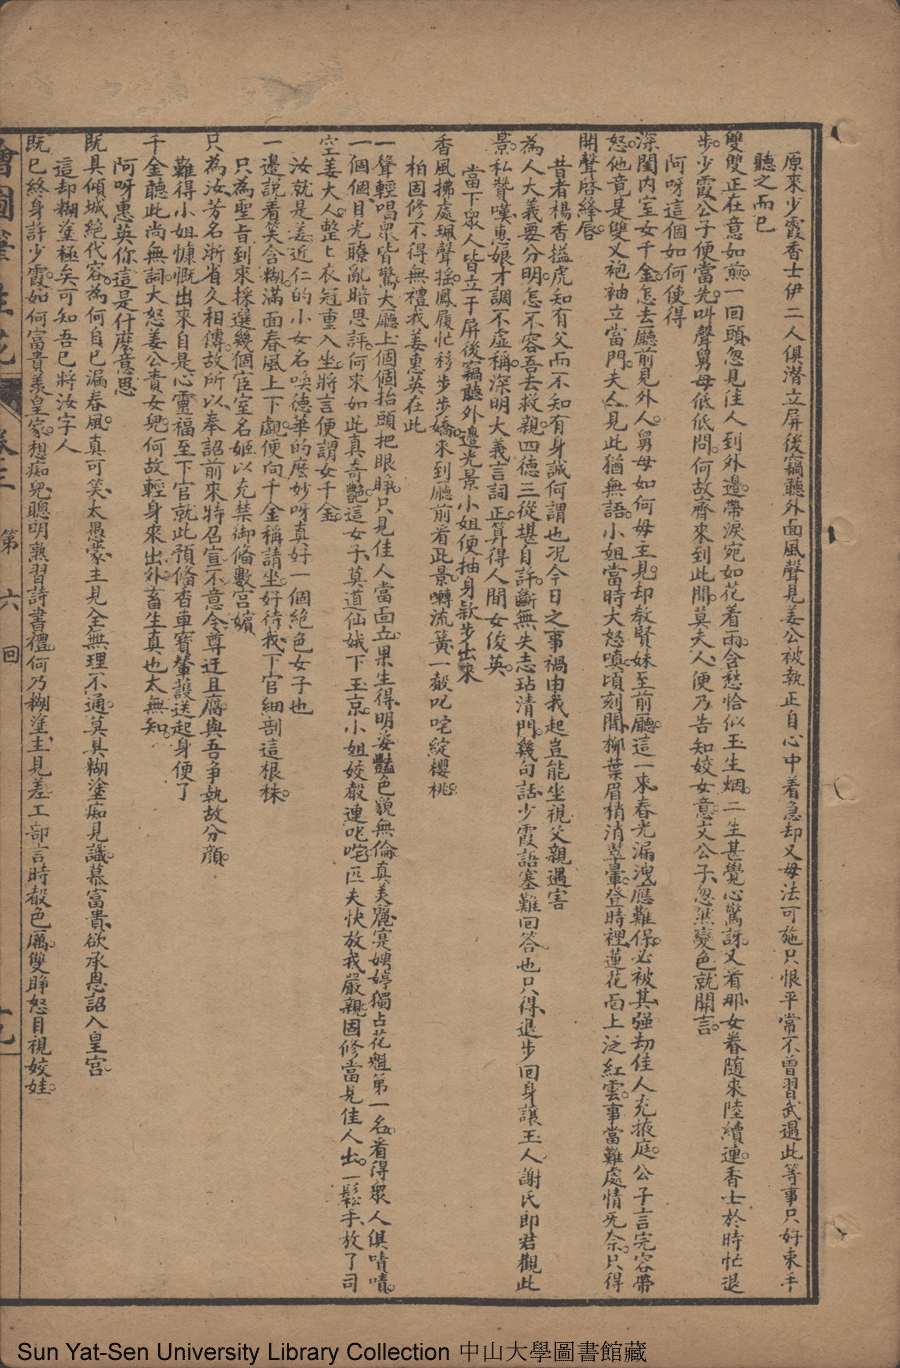 原來少霞香士伊二人俱潜立屏後竊聽外面風聲見姜公被執正自心中着急却又毋法可施只恨平常不曾習武遇此等事只好束手
聽之而已
雙雙正在意如煎一回頭忽見佳人到外邊帶淚宛如花着雨含愁恰似玉生烟二生甚覺心驚訝又看那女眷隨來陸續連香士於時忙退
步少霞公子便當先叫聲舅母低低問何故齊來到此間莫夫人便乃告知姣女意文公子忽然變色就開言
阿呀這個如何使得
深閨内室女千金怎去廳前見外人舅母如何毋主見却教賢妹至前廳這一來春光漏洩應難保必被其强刼佳人充掖庭公子言完容帶
怒他竟是雙叉袍袖立當門夫人見此猶無語小姐當時大怒嗔頃刻間柳葉眉梢消翠暈登時裡蓮花面上泛紅雲事當難處情无奈只得
開聲啓絳唇
昔者楊香搤虎知有父而不知有身誠何謂也况今日之事禍由我起豈能坐視父親遇害
為人大義要分明怎不容吾去救親四德三從堪自許斷無失志玷清門幾句話少霞語塞難回答也只得退步回身讓玉人謝氏郎君觀此
景私贊嘆惠娘才調不虛稱深明大義言詞正算得人間女俊英
當下衆人皆立于屏後竊聽外邊光景小姐便抽身欵步出來
香風拂處珮聲揺鳳履忙移步步嬌來到廳前看此景囀流簧一聲叱咤綻櫻桃
柏固修不得無禮我姜惠英在此
一聲輕唱衆皆驚大廳上個個抬頭把眼睃只見佳人當面立果生得明姿豔色貌無倫真美麗寔娉婷獨占花魁第一名看得衆人俱嘖嘖
一個個目光瞭亂暗思評何來如此真奇艷這女子莫道仙娥下玉京小姐姣聲連叱咤匹夫快放我嚴親固修當見佳人出一鬆手放了司
空姜大人整上衣冠重入坐將言便謂女千金
汝就是姜近仁的小女名喚德華的麽妙呀真好一個絕色女子也
一邊說着笑含糊滿面春風上下覷便向千金稱請坐好待我下官細剖這根株
只為聖旨到來採選幾個宦室名姬以充禁御脩數宫嬪
只為汝芳名浙省久相傳故所以奉詔前來特召宣不意令尊迂且腐與吾爭執故分顔
難得小姐慷慨出來自是心靈福至下官就此預備香車寶輦護送起身便了
千金聽此尚無詞大怒姜公責女兒何故輕身來出外畜生真也太無知
阿呀惠英你這是什麽意思
既具傾城絕代容為何自已漏春風真可笑太愚蒙主見全無理不通莫具糊塗痴見識慕富貴欲承恩詔入皇宫
這却糊塗極矣可知吾已將汝字人
既已終身許少霞如何富貴羨皇家想痴兒聰明熟習詩書禮何乃糊塗主見差工部言時聲色厲雙睁怒目視姣娃
繪圖筆生花 卷三 第六回
Sun Yat-Sen University Library Collection 中山大學圖書館藏